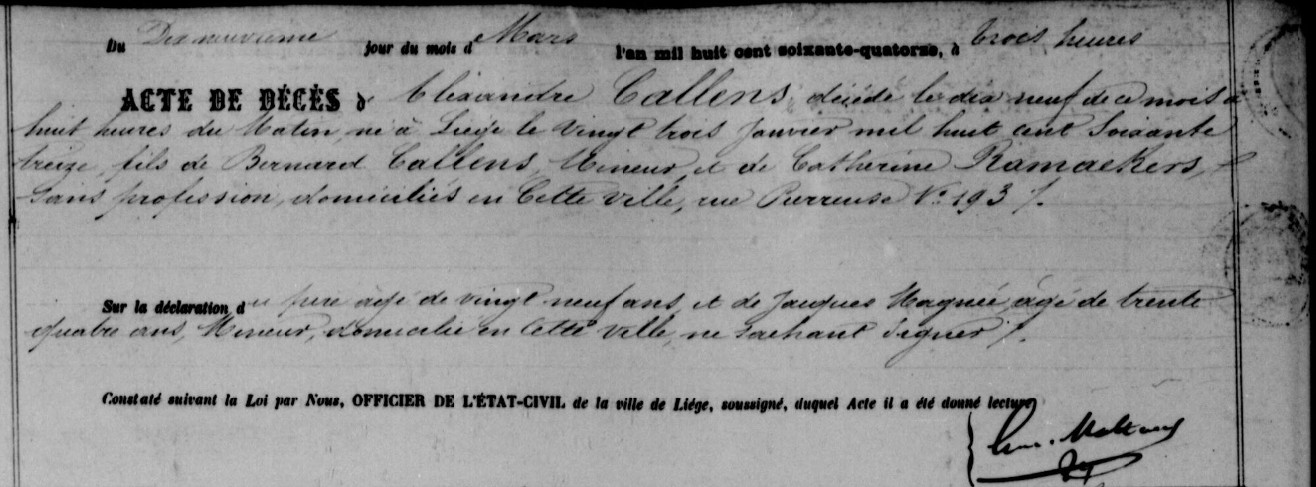 Du Dix neuvième jour du mois de Mars l'an mil huit cent soixante-quatorze, à trois heures
ACTE DE DÉCÈS d' Alexandre Callens, décédé le dix neuf de ce mois à
huit heures du Matin, né à Liège le Vingt trois Janvier mil huit cent Soixante
treize, fils de Bernard Callens, Mineur, et de Catherine Ramaekers,
Sans profession, domiciliés en Cette ville, rue Pierreuse N° 193 /.
Sur la déclaration du père âgé de vingt neuf ans, et de Jacques Magnée, âgé de trente
quatre ans, Mineur, domicilié en Cette ville, ne Sachant Signer /.
Constaté suivant la Loi par Nous, OFFICIER DE L'ÉTAT-CIVIL de la ville de Liége, soussigné, duquel Acte il a été donné lecture